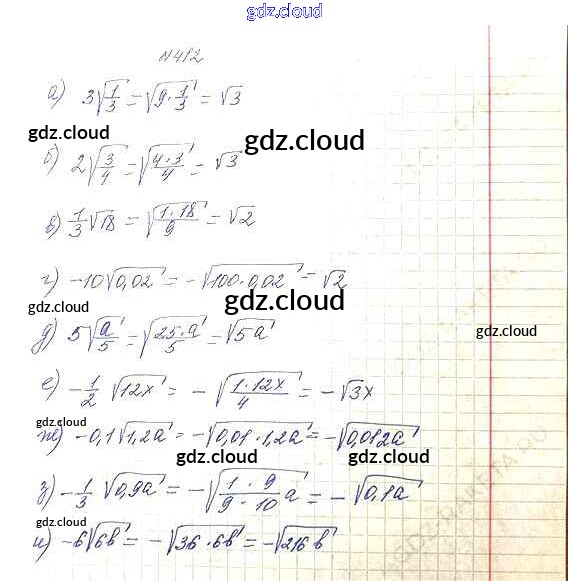 gdz.cloud
N412
а) 3√(1/3) = √(9·1/3) = √3
gdz.cloud
gdz.cloud
б) 2√(3/4) = √(4·3/4) = √3
gdz.cloud
в) 1/3√18 = √(1·18/9) = √2
г) -10√0,02 = -√(100·0,02) = √2
gdz.cloud
gdz.cloud
д) 5√(a/5) = √(25·a/5) = √5a
gdz.cloud
е) -1/2 √12x = -√(1·12x/4) = -√3x
gdz.cloud
ж) -0,1√1,2a = -√(0,01·1,2a) = -√0,012a
gdz.cloud
gdz.cloud
з) -1/3 √0,9a = -√(1·9/9·10 a) = -√0,1a
gdz.cloud
и) -6√6b = -√(36·6b) = -√216b
gdz.cloud
gdz.cloud